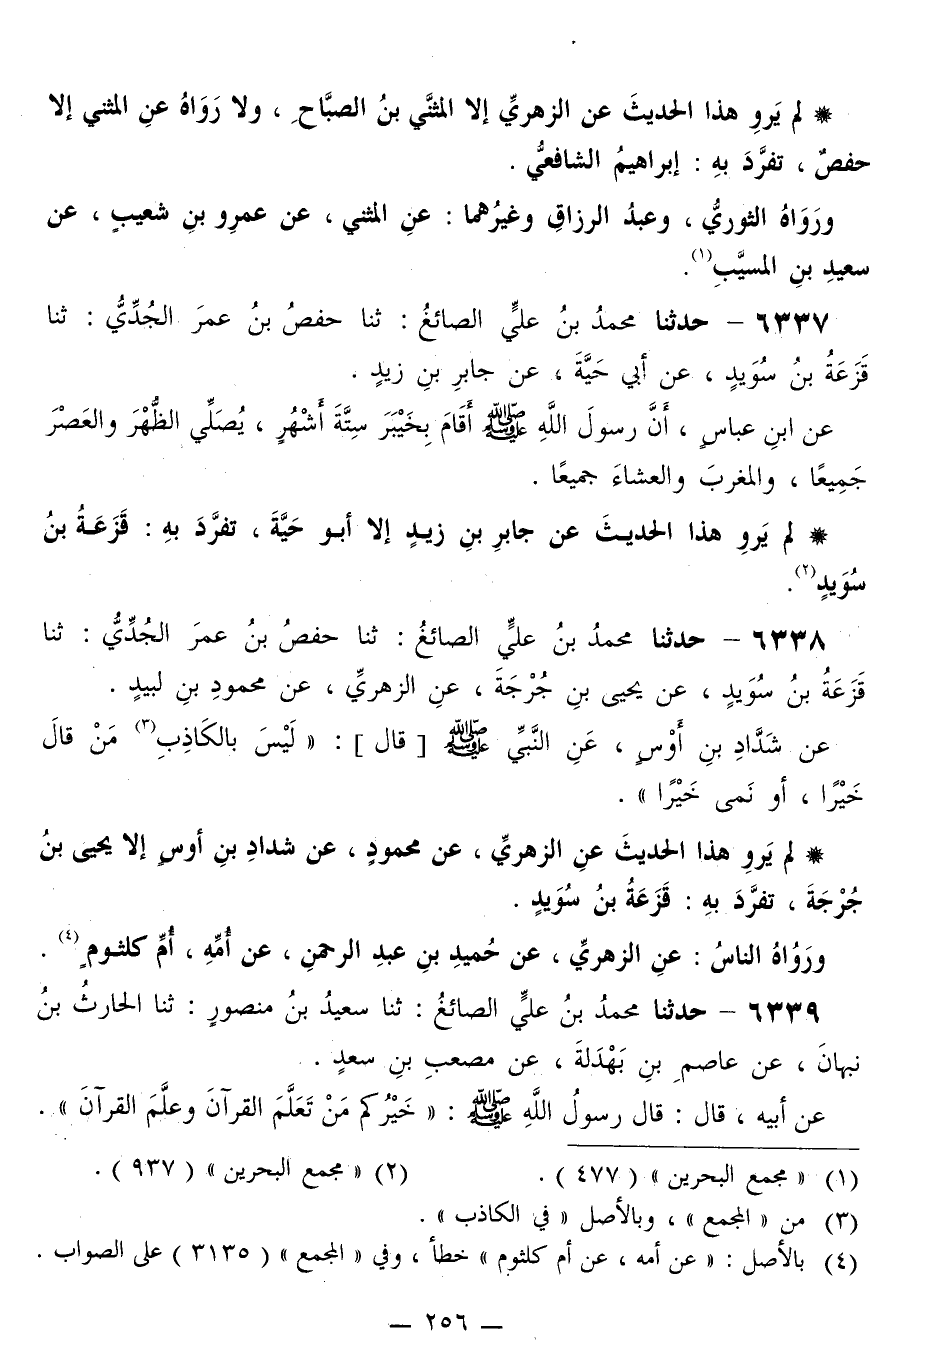 * لم يَروِ هذا الحديثَ عن الزهريِّ إلا المثنَّي بنُ الصبَّاحِ ، ولا رَوَاهُ عنِ المثني إلا
حفصٌ ، تفرَّدَ بهِ : إبراهيمُ الشافعيُّ .
ورَوَاهُ الثوريُّ ، وعبدُ الرزاقِ وغيرُهما : عنِ المثني ، عن عمرِو بنِ شعيبٍ ، عن
سعيدِ بنِ المسيَّبِ(١).
٦٣٣٧ – حدثنا محمدُ بنُ عليٍّ الصائغُ : ثنا حفصُ بنُ عمرَ الجُدِّيُّ : ثنا
قَزَعَةُ بنُ سُوَيدٍ ، عن أبي حَيَّةَ ، عن جابرِ بنِ زيدٍ .
عن ابنِ عباسٍ ، أَنَّ رسولَ اللَّهِ ﷺ أَقَامَ بِخَيْبَرَ سِتَّةَ أَشْهُرٍ ، يُصَلِّي الظُّهْرَ والعَصْرَ
جَمِيعًا ، والمغربَ والعشاءَ جميعًا .
* لم يَروِ هذا الحديثَ عن جابرِ بنِ زيدٍ إلا أبو حَيَّةَ ، تفرَّدَ بهِ : قَزَعَةُ بنُ
سُوَيدٍ(٢).
٦٣٣٨ – حدثنا محمدُ بنُ عليٍّ الصائغُ : ثنا حفصُ بنُ عمرَ الجُدِّيُّ : ثنا
قَزَعَةُ بنُ سُوَيدٍ ، عن يحيى بنِ جُرْجَةَ ، عنِ الزهريِّ ، عن محمودِ بنِ لبيدٍ .
عن شَدَّادِ بنِ أَوْسٍ ، عَنِ النَّبِيِّ ﷺ [ قال ] : « لَيْسَ بالكَاذِبِ(٣) مَنْ قالَ
خَيْرًا ، أو نَمى خَيْرًا » .
* لم يَروِ هذا الحديثَ عنِ الزهريِّ ، عن محمودٍ ، عن شدادِ بنِ أوسٍ إلا يحيى بنُ
جُرْجَةَ ، تفرَّدَ بهِ : قَزَعَةُ بنُ سُوَيدٍ .
ورَوُاهُ الناسُ : عنِ الزهريِّ ، عن حُميدِ بنِ عبدِ الرحمنِ ، عن أُمِّهِ ، أُمِّ كلثومٍ(٤) .
٦٣٣٩ – حدثنا محمدُ بنُ عليٍّ الصائغُ : ثنا سعيدُ بنُ منصورٍ : ثنا الحارثُ بنُ
نبهانَ ، عن عاصمِ بنِ بَهْدَلةَ ، عن مصعبِ بنِ سعدٍ .
عن أبيه ، قال : قال رسولُ اللَّهِ ﷺ : « خَيْرُكم مَنْ تَعَلَّمَ القرآنَ وعلَّمَ القرآنَ » .
(١) « مجمع البحرين » ( ٤٧٧ ) . (٢) « مجمع البحرين » ( ٩٣٧ ) .
(٣) من « المجمع » ، وبالأصل « في الكاذب » .
(٤) بالأصل : « عن أمه ، عن أم كلثوم » خطأ ، وفي « المجمع » ( ٣١٣٥ ) على الصواب .
— ٢٥٦ —